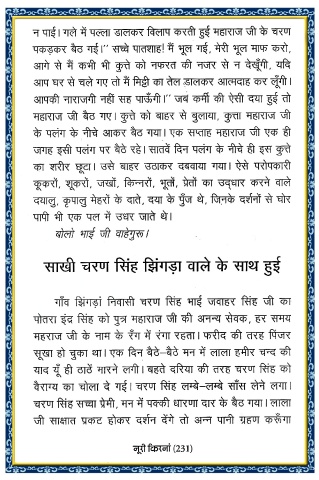 न पाई। गले में पल्ला डालकर विलाप करती हुई महाराज जी के चरण
पकड़कर बैठ गई।" सच्चे पातशाह! मैं भूल गई, मेरी भूल माफ करो,
आगे से मैं कभी भी कुत्ते को नफरत की नजर से न देखूँगी, यदि
आप घर से चले गए तो मैं मिट्टी का तेल डालकर आत्मदाह कर लूँगी।
आपकी नाराजगी नहीं सह पाऊँगी।" जब कर्मी की ऐसी दया हुई तो
महाराज जी बैठ गए। कुत्ते को बाहर से बुलाया, कुत्ता महाराज जी
के पलंग के नीचे आकर बैठ गया। एक सप्ताह महाराज जी एक ही
जगह इसी पलंग पर बैठे रहे। सातवें दिन पलंग के नीचे ही इस कुत्ते
का शरीर छूटा। उसे बाहर उठाकर दबवाया गया। ऐसे परोपकारी
कूकरों, शूकरो, जखों, किन्नरों, भूतों, प्रेतों का उद्धार करने वाले
दयालु, कृपालु मेहरों के दाते, दया के पुँज थे, जिनके दर्शनों से घोर
पापी भी एक पल में उधर जाते थे।
बोलो भाई जी वाहेगुरू।
साखी चरण सिंह झिंगड़ा वाले के साथ हुई
गाँव झिंगड़ां निवासी चरण सिंह भाई जवाहर सिंह जी का
पोतरा इंद्र सिंह को पुत्र महाराज जी की अनन्य सेवक, हर समय
महराज जी के नाम के रैंग में रंगा रहता। फरीद की तरह पिंजर
सूखा हो चुका था। एक दिन बैठे-बैठे मन में लाला हमीर चन्द की
याद यूँ ही ठाठें भारने लगी। बहते दरिया की तरह चरण सिंह को
वैराग्य का चोला दे गई। चरण सिंह लम्बे-लम्बे साँस लेने लगा।
चरण सिंह सच्चा प्रेमी, मन में पक्की धारणा दार के बैठ गया। लाला
जी साक्षात प्रकट होकर दर्शन देंगे तो अन्न पानी ग्रहण करूँगा
नूरी किरनां (231)